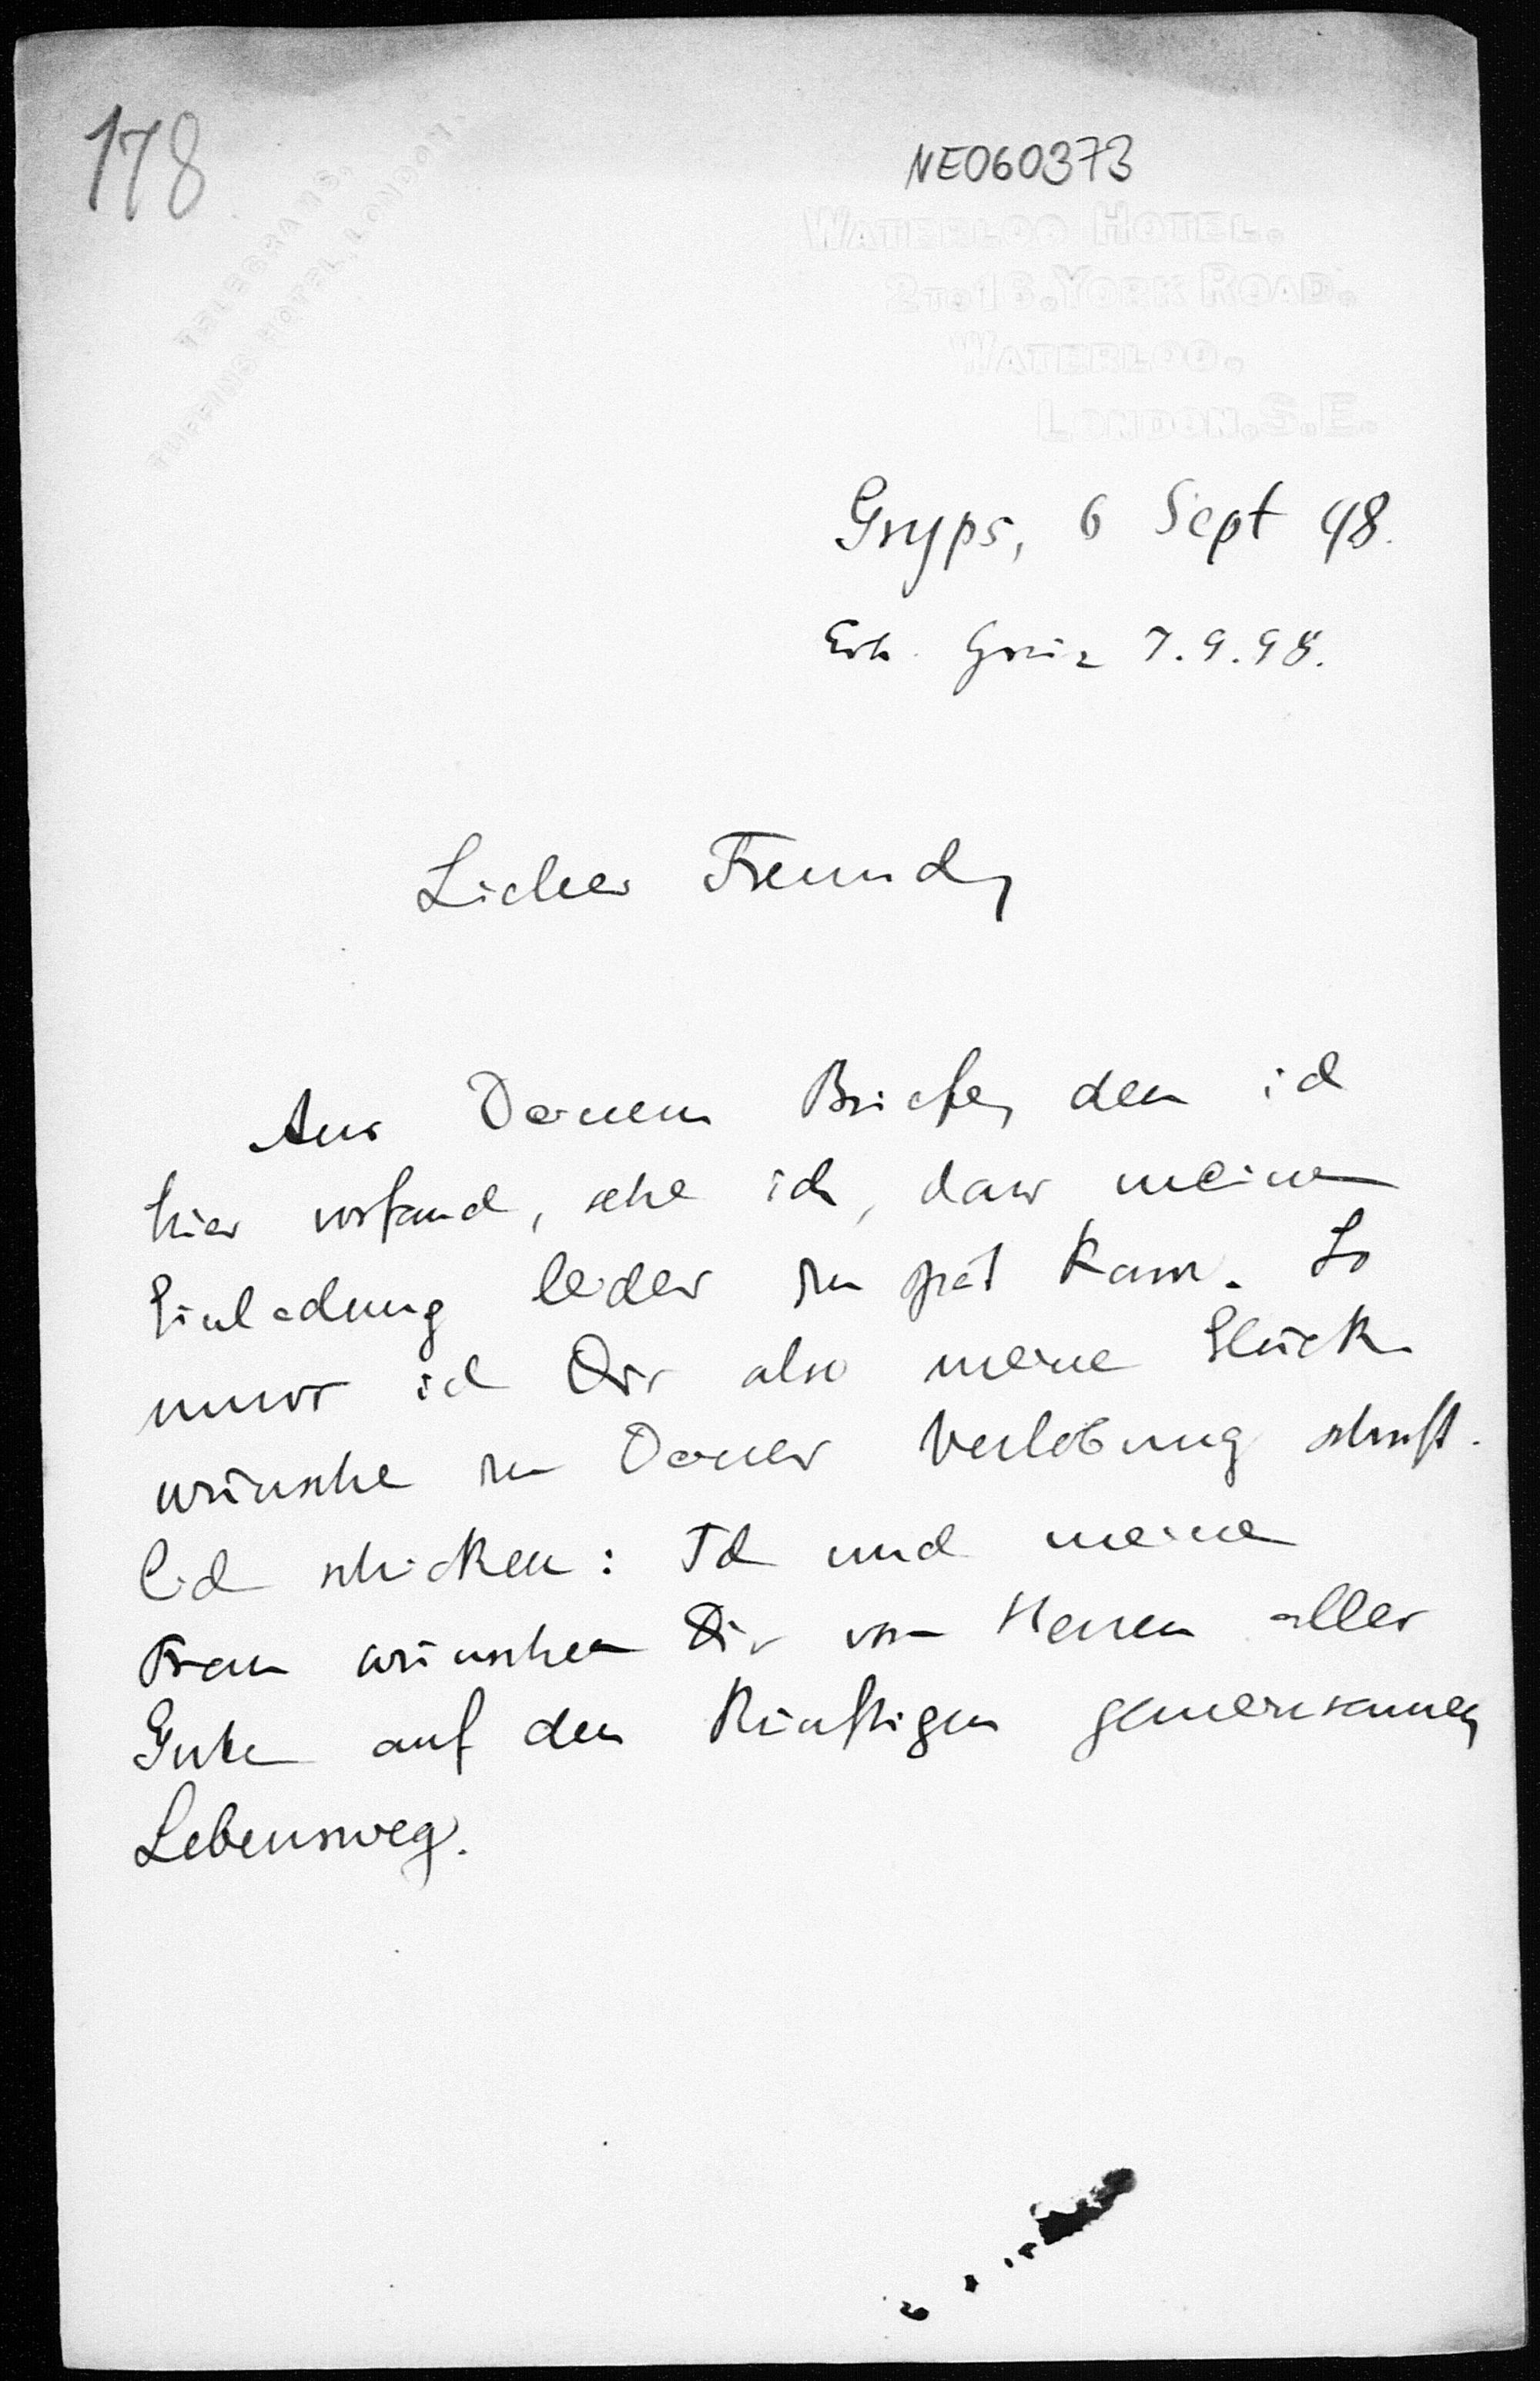 178
NE060373
TELEGRAMS,
TUFFINS HOTEL, LONDON.
WATERLOO HOTEL.
2 TO 16. YORK ROAD.
WATERLOO.
LONDON. S.E.
Gryps, 6 Sept 98.
Erh. Greiz 7.9.98.
Lieber Freund,
Aus Deinem Briefe, den ich
hier vorfand, sehe ich, dass meine
Einladung leider zu spät kam. So
muss ich Dir also meine Glück
wünsche zu Deiner Verlobung schrift-
lich schicken: Ich und meine
Frau wünschen Dir von Herzen alles
Gute auf den künftigen gemeinsamen
Lebensweg.